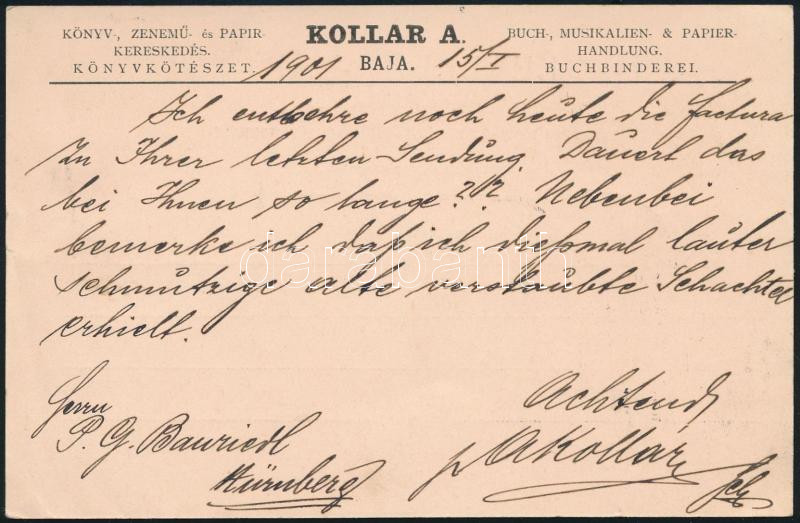 KÖNYV-, ZENEMŰ- és PAPIR-
KERESKEDÉS.
KÖNYVKÖTÉSZET.
KOLLAR A.
BAJA.
BUCH-, MUSIKALIEN- & PAPIER-
HANDLUNG.
BUCHBINDEREI.
1901 15/I
Ich entbehre noch heute die factura
zu Ihrer letzten Sendung. Dauert das
bei Ihnen so lange?? Nebenbei
bemerke ich daß ich dießmal lauter
schmutzige alte verstaubte Schachtel
erhielt.
Herrn
P. G. Bauriedl
Nürnberg
Achtend
p AKollar
darabanth